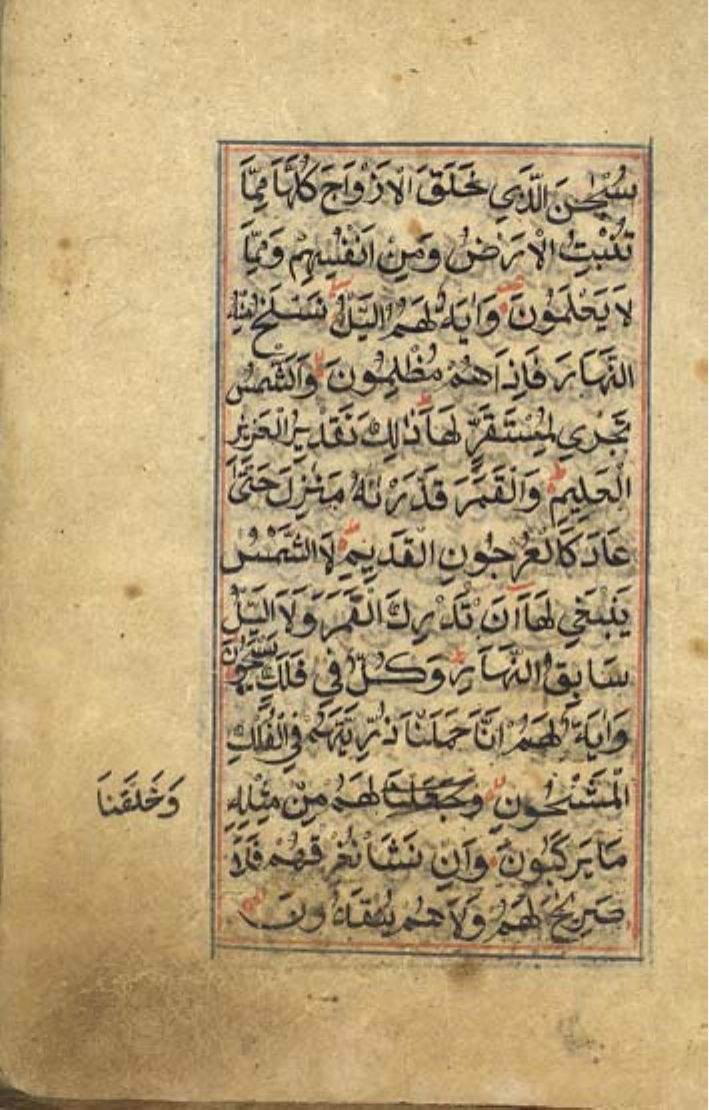 سُبْحٰنَ الَّذِي خَلَقَ الْاَزْوَاجَ كُلَّهَا مِمَّا
تُنْبِتُ الْاَرْضُ وَمِنْ اَنْفُسِهِمْ وَمِمَّا
لَا يَعْلَمُونَ وَاٰيَةٌ لَهُمُ الَّيْلُ نَسْلَخُ مِنْهُ
النَّهَارَ فَاِذَا هُمْ مُظْلِمُونَ وَالشَّمْسُ
تَجْرِي لِمُسْتَقَرٍّ لَهَا ذٰلِكَ تَقْدِيرُ الْعَزِيزِ
الْعَلِيمِ وَالْقَمَرَ قَدَّرْنٰهُ مَنَازِلَ حَتّٰى
عَادَ كَالْعُرْجُونِ الْقَدِيمِ لَا الشَّمْسُ
يَنْبَغِي لَهَا اَنْ تُدْرِكَ الْقَمَرَ وَلَا الَّيْلُ
سَابِقُ النَّهَارِ وَكُلٌّ فِي فَلَكٍ يَسْبَحُونَ
وَاٰيَةٌ لَهُمْ اَنَّا حَمَلْنَا ذُرِّيَّتَهُمْ فِي الْفُلْكِ
الْمَشْحُونِ وَجَعَلْنَا لَهُمْ مِنْ مِثْلِهِ
مَا يَرْكَبُونَ وَاِنْ نَشَأْ نُغْرِقْهُمْ فَلَا
صَرِيخَ لَهُمْ وَلَا هُمْ يُنْقَذُونَ
وَخَلَقْنَا